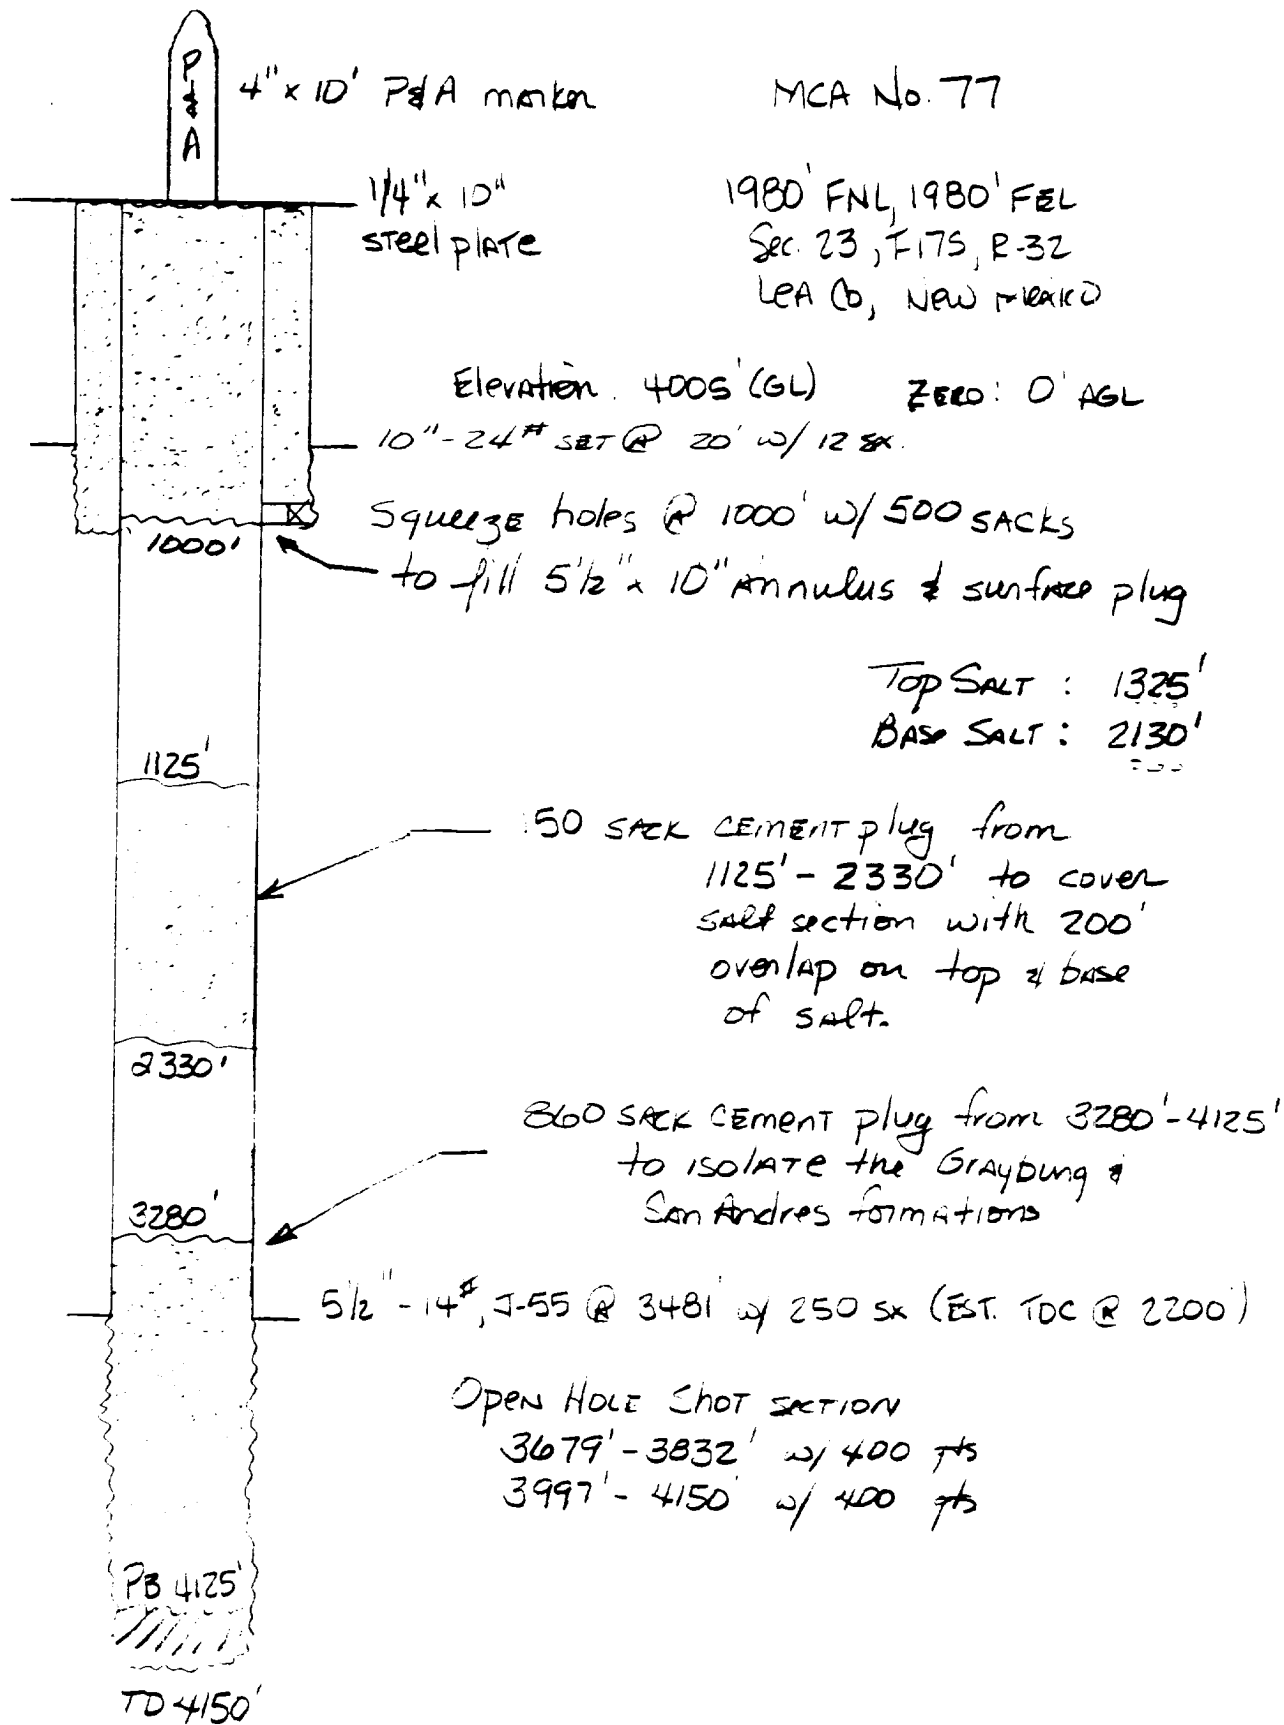 P
&
A
4" x 10' P&A marker
MCA No. 77
1/4" x 10"
steel plate
1980' FNL, 1980' FEL
Sec. 23, T-17S, R-32
Lea Co, New Mexico
Elevation 4005' (GL)
ZERO: 0' AGL
10"-24# SET @ 20' w/ 12 sx.
Squeeze holes @ 1000' w/ 500 SACKS
to fill 5 1/2" x 10" Annulus & surface plug
1000'
Top SALT : 1325'
BASE SALT : 2130'
1125'
150 SACK CEMENT plug from
1125' - 2330' to cover
salt section with 200'
overlap on top & base
of salt.
2330'
860 SACK CEMENT plug from 3280'-4125'
to isolate the Grayburg &
San Andres formations
3280'
5 1/2"-14#, J-55 @ 3481' w/ 250 sx (EST. TOC @ 2200')
Open HOLE Shot SECTION
3679' - 3832' w/ 400 qts
3997' - 4150' w/ 400 qts
PB 4125'
TD 4150'